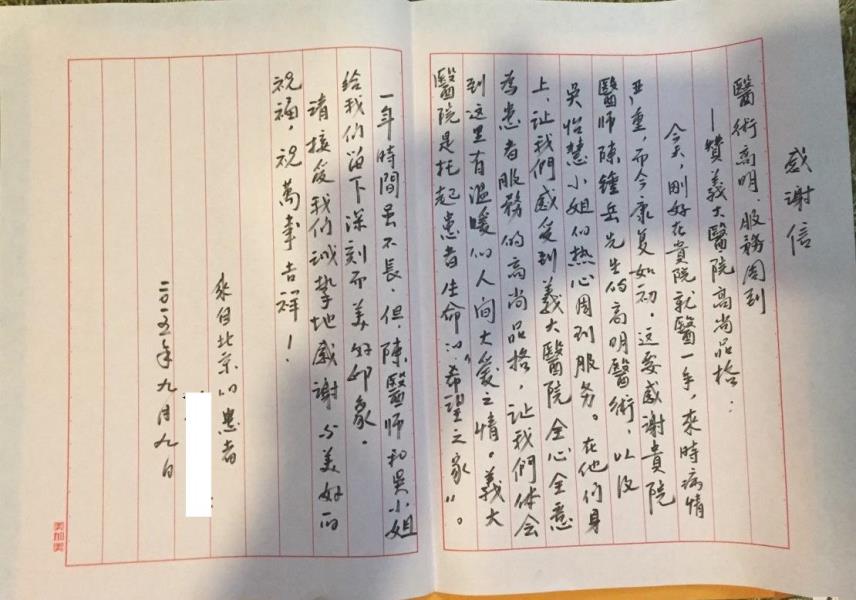 感谢信
醫術高明、服務周到
—贊義大醫院高尚品格：
今天，剛好在貴院就醫一年，來時病情
严重，而今康复如初。这要感谢貴院
醫师陳鍾岳先生的高明醫術，以及
吳怡慧小姐的热心周到服务。在他们身
上，让我們感受到義大醫院全心全意
為患者服務的高尚品格，让我們体会
到这里有溫暖的人间大爱之情。義大
醫院是托起患者生命的“希望之家”。
一年時間虽不長，但，陳醫师和吳小姐
给我们留下深刻而美好印象。
请接受我们诚挚地感谢与美好的
祝福，祝萬事吉祥！
來自北京的患者
：
二〇一五年九月九日
美加美